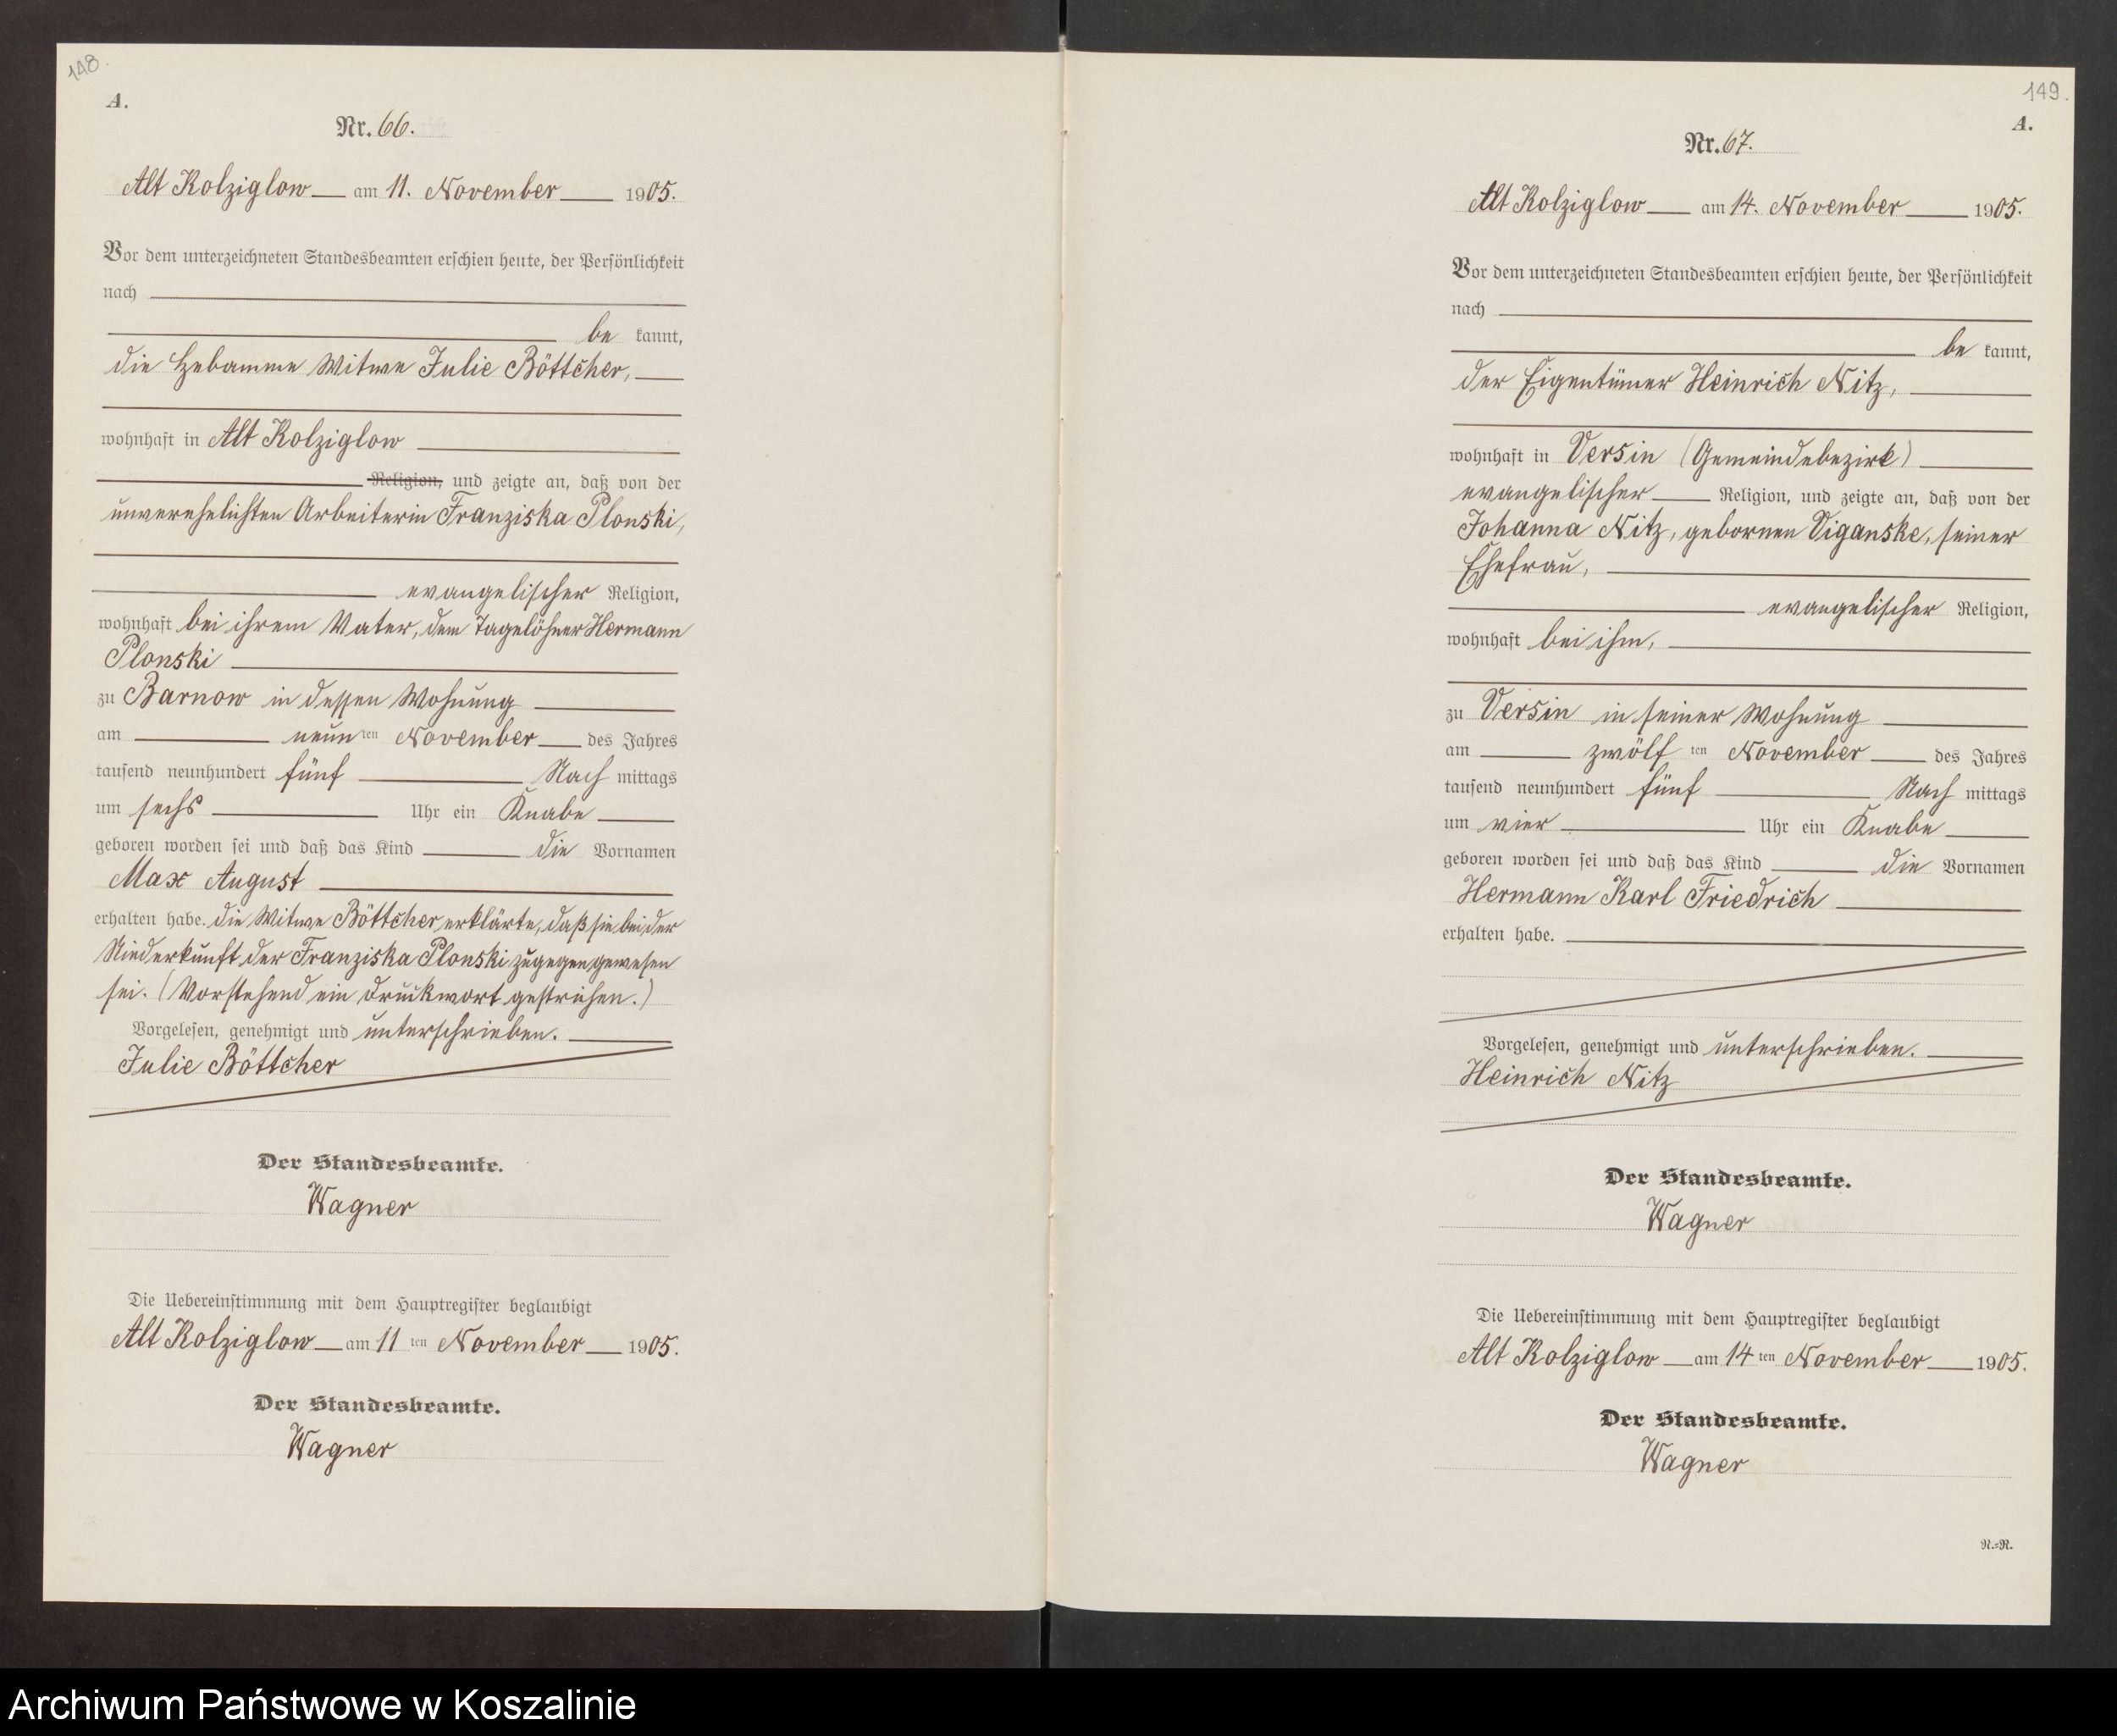 148.
A.
Nr. 66.
Alt Kolziglow am 11. November 1905.
Vor dem unterzeichneten Standesbeamten erschien heute, der Persönlichkeit
nach
be kannt,
die Hebamme Witwe Julie Böttcher,
wohnhaft in Alt Kolziglow
Religion, und zeigte an, daß von der
unverehelichten Arbeiterin Franziska Plonski,
evangelischer Religion,
wohnhaft bei ihrem Vater, dem Tagelöhner Hermann
Plonski
zu Barnow in dessen Wohnung
am neun ten November des Jahres
tausend neunhundert fünf Nach mittags
um sechs Uhr ein Knabe
geboren worden sei und daß das Kind die Vornamen
Max August
erhalten habe. Die Witwe Böttcher erklärte, daß sie bei der
Niederkunft der Franziska Plonski zugegen gewesen
sei. (Vorstehend ein Druckwort gestrichen.)
Vorgelesen, genehmigt und unterschrieben.
Julie Böttcher
Der Standesbeamte.
Wagner
Die Uebereinstimmung mit dem Hauptregister beglaubigt
Alt Kolziglow am 11 ten November 1905.
Der Standesbeamte.
Wagner
149.
A.
Nr. 67.
Alt Kolziglow am 14. November 1905.
Vor dem unterzeichneten Standesbeamten erschien heute, der Persönlichkeit
nach
be kannt,
der Eigentümer Heinrich Nitz,
wohnhaft in Versin (Gemeindebezirk)
evangelischer Religion, und zeigte an, daß von der
Johanna Nitz, gebornen Viganske, seiner
Ehefrau,
evangelischer Religion,
wohnhaft bei ihm,
zu Versin in seiner Wohnung
am zwölf ten November des Jahres
tausend neunhundert fünf Nach mittags
um vier Uhr ein Knabe
geboren worden sei und daß das Kind die Vornamen
Hermann Karl Friedrich
erhalten habe.
Vorgelesen, genehmigt und unterschrieben.
Heinrich Nitz
Der Standesbeamte.
Wagner
Die Uebereinstimmung mit dem Hauptregister beglaubigt
Alt Kolziglow am 14 ten November 1905.
Der Standesbeamte.
Wagner
R.=R.
Archiwum Państwowe w Koszalinie